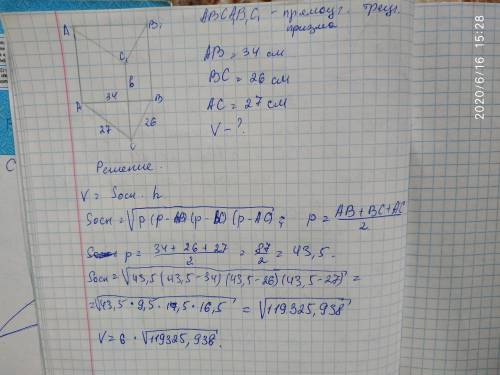 ABCA₁B₁C₁ - прямоуг. треуг.
призма
AB = 34 см
BC = 26 см
AC = 27 см
V - ?
A
B₁
C₁
6
34
A
B
27
26
C
Решение.
V = Sосн. h
Sосн = √p(p-AB)(p-BC)(p-AC); p = AB+BC+AC / 2
p = 34+26+27 / 2 = 87 / 2 = 43,5.
Sосн = √43,5(43,5-34)(43,5-26)(43,5-27) =
= √43,5 · 9,5 · 17,5 · 16,5 = √119325,938
V = 6 · √119325,938.
2020/6/16 15:28